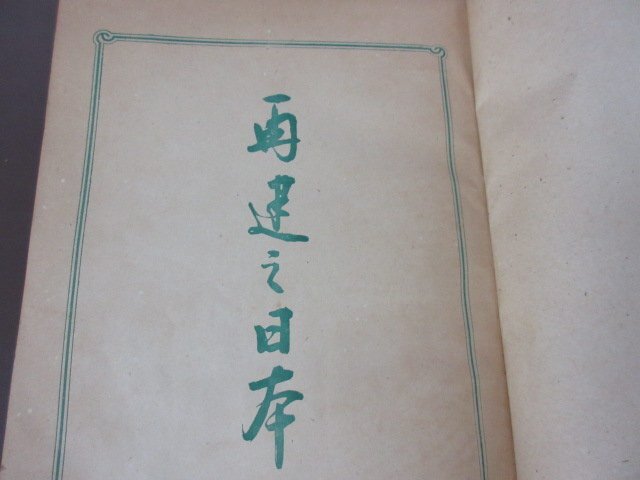 再建之日本